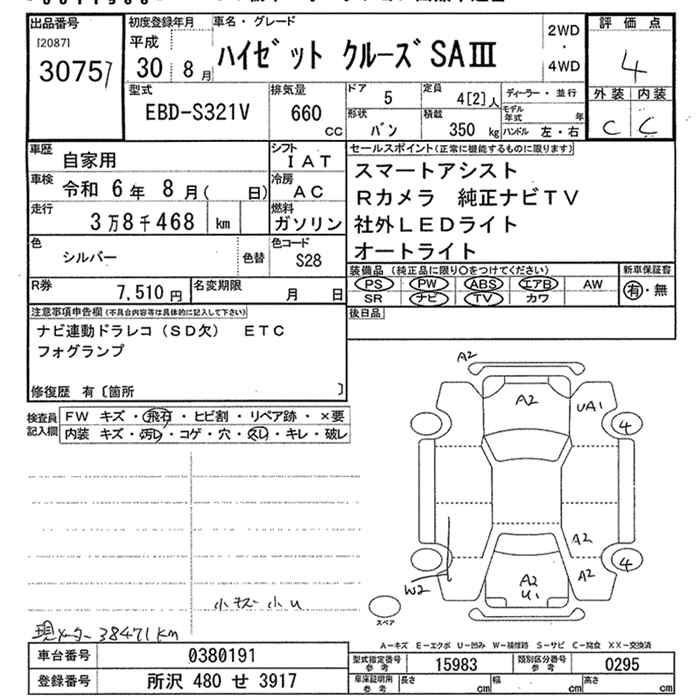 出品番号 初度登録年月 車名・グレード
[2087] 平成 ハイゼット クルーズ SAⅢ 2WD ・ 4WD 評価点
3075 30 8月 4
型式 排気量 ドア 5 定員 4[2]人 ディーラー・並行 外装 内装
EBD-S321V 660 CC 形状 バン 積載 350 kg モデル年式 年 C C
ハンドル 左・右
車歴 自家用 シフト IAT セールスポイント(正常に機能するものに限ります)
車検 令和 6年 8月( 日) 冷房 AC スマートアシスト
走行 3万8千468 km 燃料 ガソリン Rカメラ 純正ナビTV
社外LEDライト
色 シルバー 色替 色コード S28 オートライト
R券 7,510円 名変期限 月 日 装備品(純正品に限り○をつけてください) 新車保証書
PS PW ABS エアB AW 有・無
SR ナビ TV カワ
注意事項申告欄(不具合内容等は具体的に記入して下さい) 後日品
ナビ連動ドラレコ(SD欠) ETC
フォグランプ
修復歴 有〔箇所 〕
検査員記入欄 FW キズ・飛石・ヒビ割・リペア跡・×要
内装 キズ・汚レ・コゲ・穴・スレ・キレ・破レ
A2
A2 UA1
4
A2
4
W2 A2 A2
U1
小キズ 小U
スペア
現メーター 38471km
A-キズ E-エクボ U-凹み W-補修跡 S-サビ C-腐食 XX-交換済
車台番号 0380191 型式指定番号 参考 15983 類別区分番号 参考 0295
登録番号 所沢 480 せ 3917 車庫証明用 参考 長さ cm 幅 cm 高さ cm